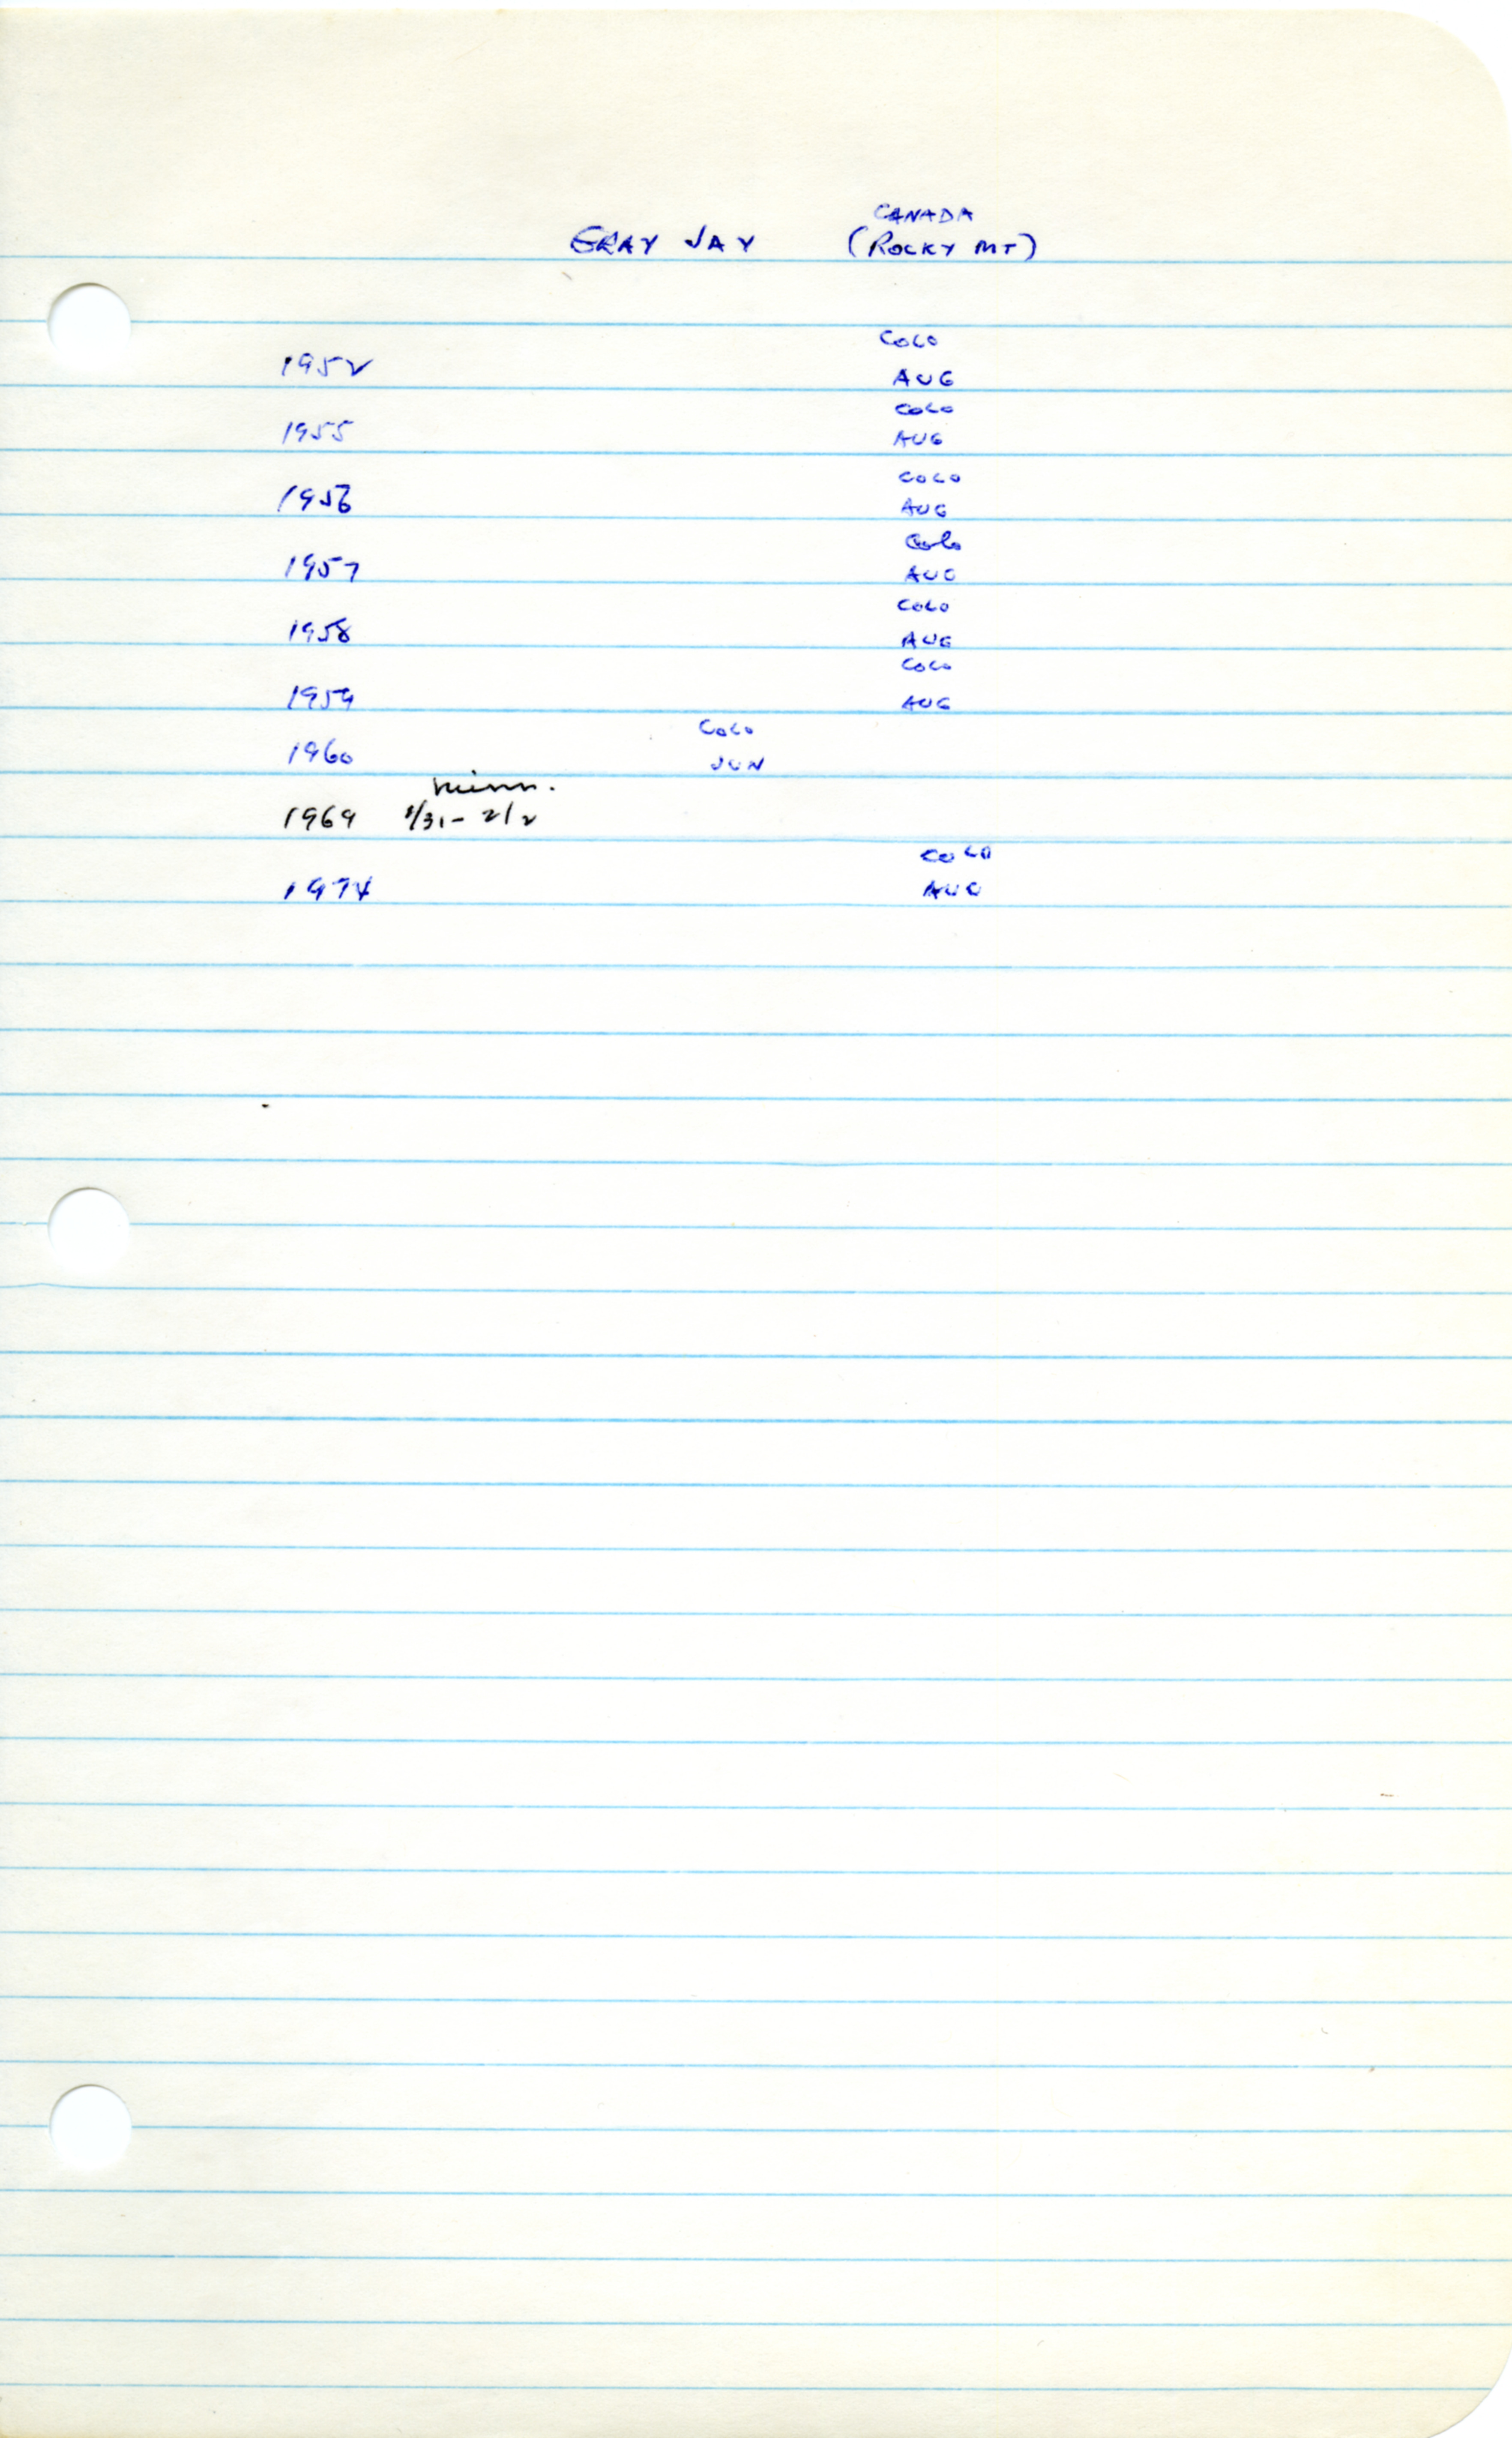 CANADA
GRAY JAY (ROCKY MT)
COLO
1952 AUG
COLO
1955 AUG
COLO
1956 AUG
Colo
1957 AUG
COLO
1958 AUG
COLO
1959 AUG
COLO
1960 JUN
Minn.
1969 1/31 - 2/2
COLO
1974 AUG